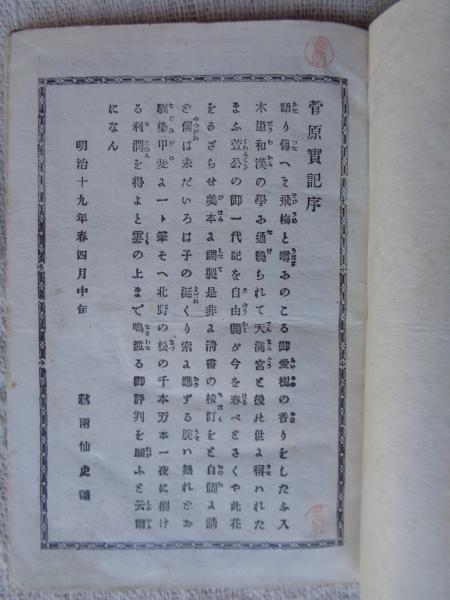 菅原實記序
語り傳へて飛梅と噂ふのこる御愛樹の香りをしたふ入
木道和漢の學ふ通暁られて天滿宮と後此世よ稱ハれた
まふ菅公の御一代記を自由閣が今を春べとさくや此花
をかざらせ美本よ調製是非よ淸書の按訂をと自個よ請
ど僕は未だいろは子の涎くり索よ應ずる腕ハ無れどお
馴染甲斐よ一ト筆そへ北野の松の千本万本一夜に捌け
る利潤を得よと雲の上まで鳴渡る御評判を願ふと云爾
になん
明治十九年春四月中旬
秋雨仙史識